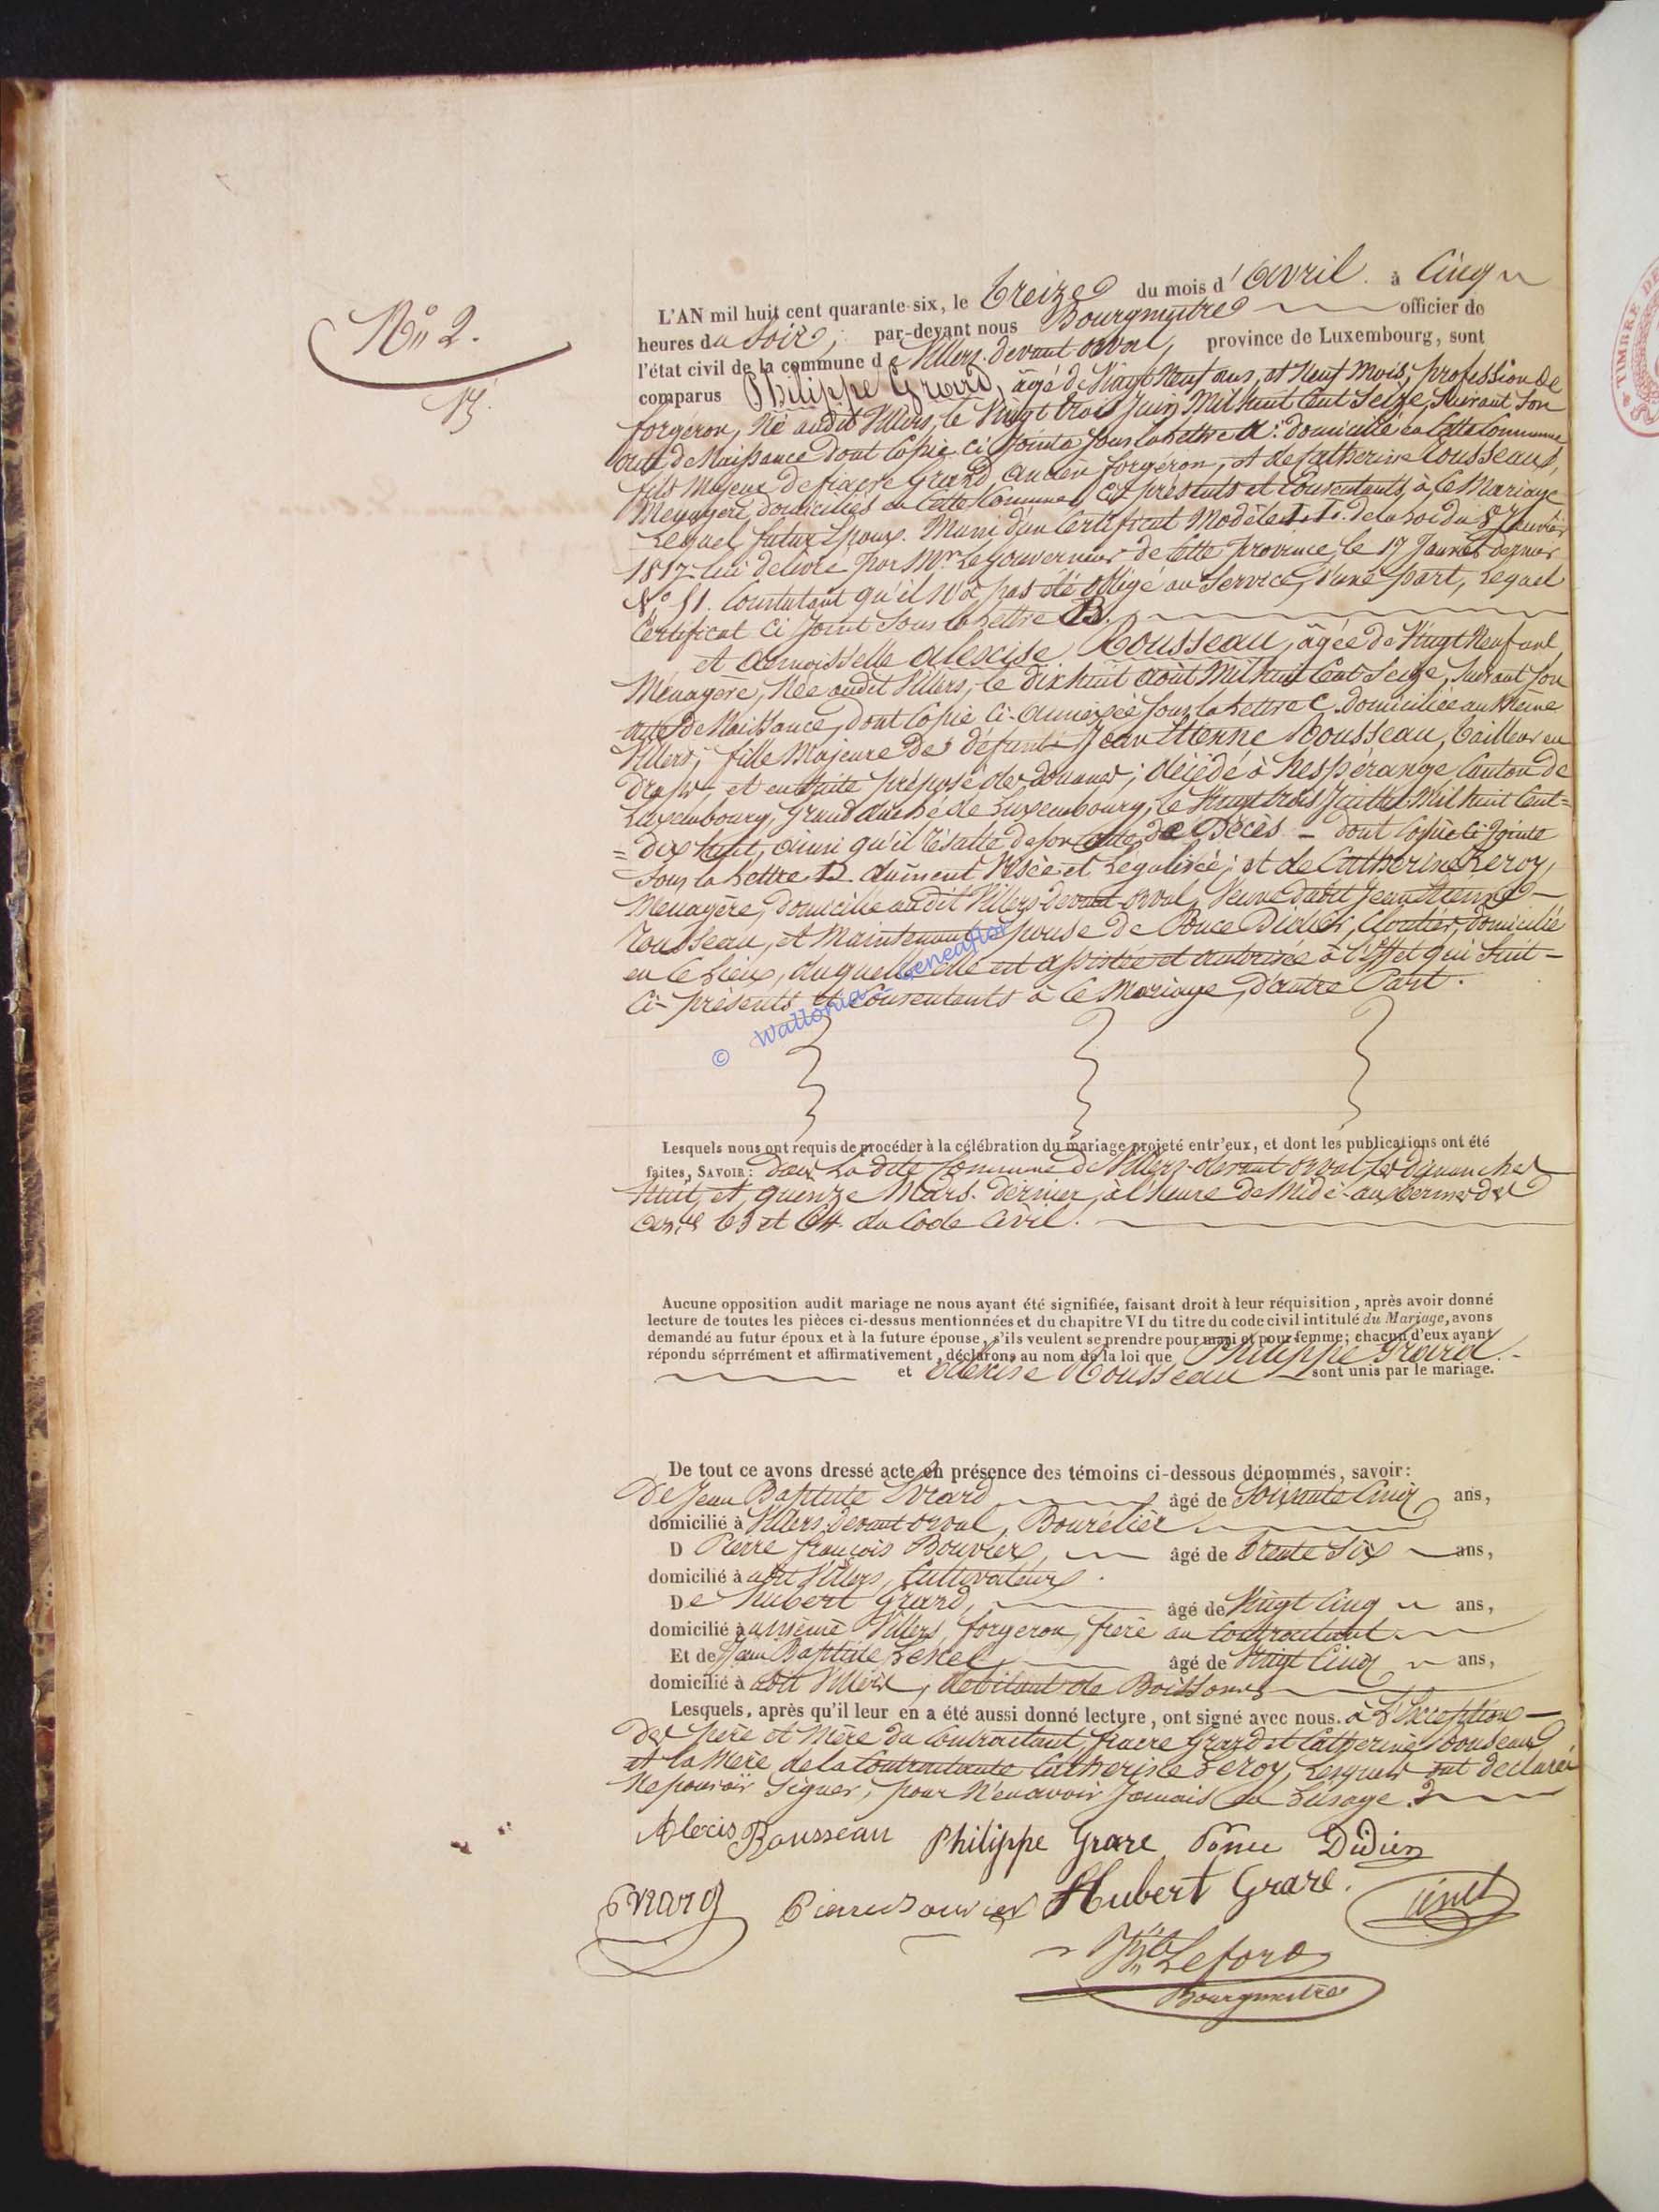 N° 2.
L'AN mil huit cent quarante-six, le treize du mois d'avril à cinq
heures du soir, par-devant nous Bourgmestre officier de
l'état civil de la commune de Villers-devant-orval, province de Luxembourg, sont
comparus Philippe Grard, âgé de Vingt Neuf ans, et Neuf mois, profession de
forgéron, Né audit Villers, le Vingt trois Juin Mil huit Cent Seize, Suivant Son
acte de Naissance dont Copie ci jointe sous la lettre A: domicilié en Cette Commune
fils Majeur de fiacre Grard, ancien forgéron, et de Catherine Rousseaux,
Ménagère, domiciliés en Cette Commune, Ci présents et Consentants à Ce Mariage
Lequel futur Epoux. Muni d'un Certificat Modèle de la Loi du 8 Janvier
1817 lui délivré par Mr. Le gouverneur de Cette province, le 17 Janvier dernier
N° 51. Constatant qu'il N'a pas été obligé au Service, d'une part, Lequel
Certificat Ci Joint Sous la Lettre B.
et demoisselle alexise Rousseau, âgée de Vingt Neuf ans,
Ménagère, Née audit Villers, le dix huit août Mil huit Cent Seize, Suivant Son
acte de Naissance, dont Copie Ci-annexée sous la Lettre C. domiciliée au Même
Villers, fille Majeure de défunt Jean Etienne Rousseau, tailleur en
draps, et en suite préposé des douanes; décédé à Hespérange, Canton de
Luxembourg, grand duché de Luxembourg, le Vingt trois Juillet Mil huit Cent=
=dix huit, ainsi qu'il résulte de son acte de Décès - dont Copie Ci-Jointe
Sous la Lettre D. dûment Visée et Légalisée; et de Catherine Leroy,
Ménagère, domicilié audit Villers-devant-orval, Veuve dudit Jean Etienne
Rousseau, et Maintenant Epouse de Ponce Didier, Cloutier, domicilié
en Ce Lieux, duquel Elle est assistée et autorisée à L'Effet qui Suit -
Ci-présents et Consentants à Ce Mariage, d'autre Part.
© Wallonia - Geneaflor
Lesquels nous ont requis de procéder à la célébration du mariage projeté entr'eux, et dont les publications ont été
faites, SAVOIR: dans La dite Commune de Villers-devant orval, les dimanches
huit, et quinze Mars. dernier, à l'heure de Midi - aux termes des
63 et 64 du Code Civil.
Aucune opposition audit mariage ne nous ayant été signifiée, faisant droit à leur réquisition, après avoir donné
lecture de toutes les pièces ci-dessus mentionnées et du chapitre VI du titre du code civil intitulé du Mariage, avons
demandé au futur époux et à la future épouse, s'ils veulent se prendre pour mari et pour femme; chacun d'eux ayant
répondu séprrément et affirmativement, déclarons au nom de la loi que Philippe Grard
et Alexise Rousseau sont unis par le mariage.
De tout ce avons dressé acte en présence des témoins ci-dessous dénommés, savoir:
De Jean Baptiste Evrard âgé de Soixante Cinq ans,
domicilié à Villers devant orval, Bourélier
D Pierre françois Bouvier, âgé de trente Six ans,
domicilié à udit Villers, Cultivateur.
De hubert Grard, âgé de Vingt Cinq ans,
domicilié à umême Villers, forgeron, frère au Contractant
Et de Jean Baptiste âgé de Vingt Cinq ans,
domicilié à udit Villers, débitant de Boissons
Lesquels, après qu'il leur en a été aussi donné lecture, ont signé avec nous. à L'Exception -
des père et Mère du Contractant, fiacre Grard et Catherine Rousseaux
et la Mère de la Contractante Catherine Leroy, Lesquels ont déclaré
Ne pouvoir Signer, pour N'en avoir Jamais eu L'usage.
Alexis Rousseau Philippe Grare Ponce Didier
Evrard Pierre Bouvier Hubert Grare.
Bourgmestre